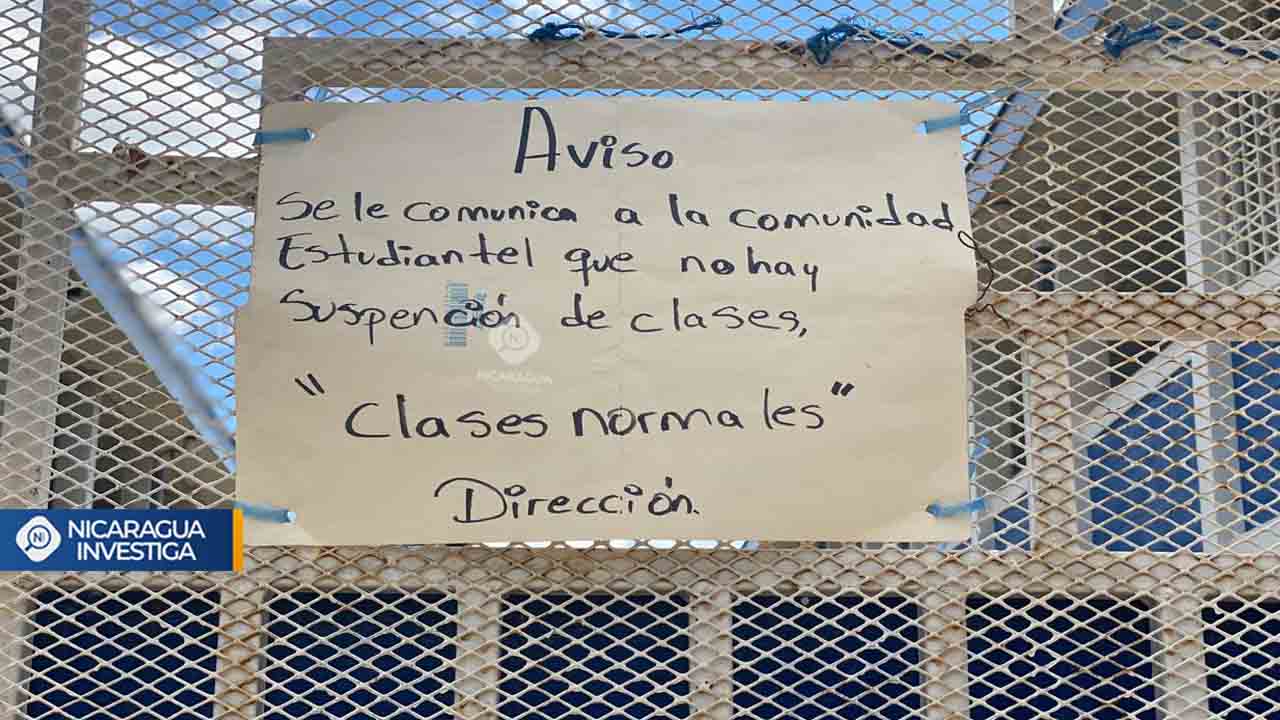 Aviso
Se le comunica a la comunidad
Estudiantel que no hay
Suspención de clases,
"Clases normales"
Dirección.
NICARAGUA
INVESTIGA
NICARAGUA